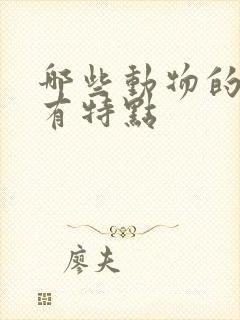 哪些動物的
有特點
廖夫